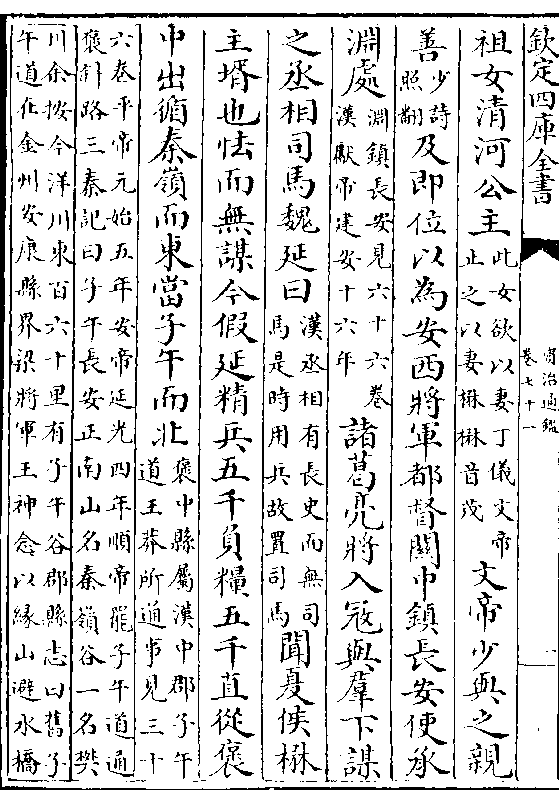 欽定四庫全書
資治通鑑
卷七十一
一
祖女清河公主此女欲以妻丁儀文帝
止之以妻楙楙音茂文帝少與之親
善少詩
照翻及即位以為安西將軍都督關中鎮長安使承
淵處淵鎮長安見六十六卷
漢獻帝建安十六年諸葛亮將入寇與羣下謀
之丞相司馬魏延曰漢丞相有長史而無司
馬是時用兵故置司馬聞夏侯楙
主壻也怯而無謀今假延精兵五千負糧五千直從褒
中出循秦嶺而東當子午而北褒中縣屬漢中郡子午
道王莽所通事見三十
六卷平帝元始五年安帝延光四年順帝罷子午道通
褒斜路三秦記曰子午長安正南山名秦嶺谷一名樊
川余按今洋川東百六十里有子午谷郡縣志曰舊子
午道在金州安康縣界梁將軍王神念以緣山避水橋